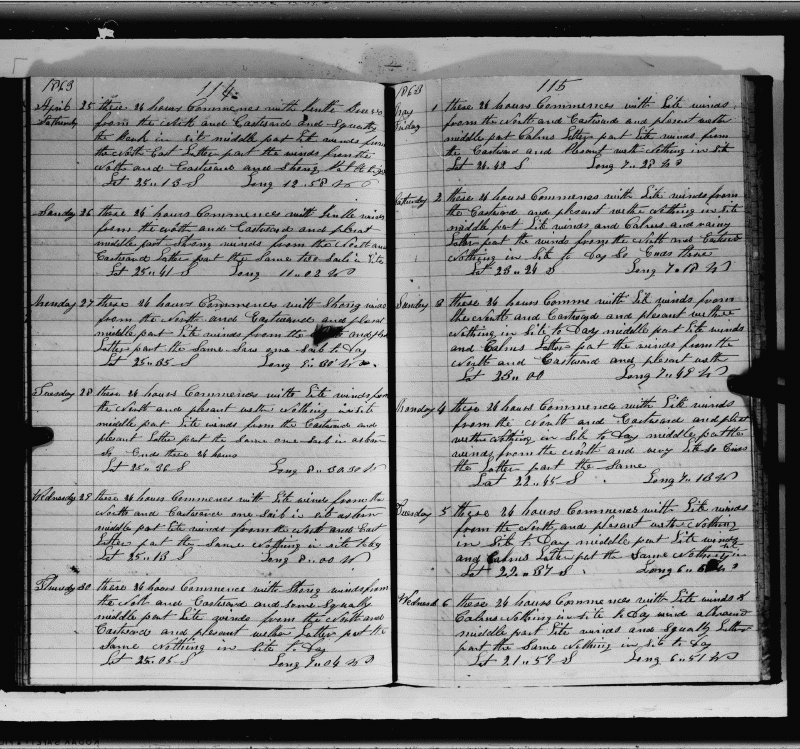 1863
114
April 25 these 24 hours Commences with
from the North and Eastward and Squally
middle part Lit winds from
the North East Latter part the winds from the
North and Eastward and Strong
Lat 25 " 13 S Long 12 " 58 W
Sunday 26 these 24 hours Commences with winds
from the North and Eastward and plesat
middle part Strong winds from the North and
Eastward Latter part the Same
Lat 25 " 41 S Long 11 " 02 W
Monday 27 these 24 hours Commences with Strong winds
from the North and Eastward and plesat
middle part Lite winds from the and
Latter part the Same Saw one Sail to Day
Lat 25 " 35 S Long W
Tuesday 28 these 24 hours Commences with Lite winds from
the North and plesant wether Nothing in site
middle part Lite winds from the Eastward and
plesant Latter part the same one sail in
So Ends these 24 hours
Lat 25 " 36 S Long 8 " 30 W
Wednesdy 29 these 24 hours Commences with Lite winds from the
North and Eastward one Sail in site
middle part Lite winds from the North and East
Latter part the Same Nothing in site
Lat 25 " 13 S Long 8 " 00 W
Thursdy 30 these 24 hours Commences with Strong winds from
the North and Eastward and some Squally
middle part Lite winds from the North and
Eastward and plesant wether Latter part the
Same Nothing in Site to Day
Lat 25 " 05 S Long 04 W
1863
115
May 1 these 24 hours Commences with Lite winds
Friday from the North and Eastward and plesant wether
middle part Calms Latter part Lite winds from
the Eastward and Plesant with Nothing in Site
Lat 24 " 42 S Long 7 " 28 W
Saturday 2 these 24 hours Commences with Lite winds from
the Eastward and plesant wether Nothing in site
middle part Lite winds and Calms and rainy
Latter part the winds from the North and Eastward
Nothing in Site to Day So Ends these
Lat 23 " 24 S Long 7 " 18 W
Sunday 3 these 24 hours Comme with Lit winds from
the North and Eastward and plesant wether
Nothing in Site to Day middle part Lite winds
and Calms Latter part the winds from the
North and Eastward and plesant wether
Lat 23 " 00 Long 7 " 49 W
Monday 4 these 24 hours Commences with Lite winds
from the North and Eastward and plesat
wether Nothing in Site to Day middle part the
winds from the North and very Lite So Ends
the Latter part the Same
Lat 22 " 45 S Long 7 " 13 W
Tuesday 5 these 24 hours Commences with Lite winds
from the North and plesant wether Nothing
in Site to Day middle part Lite winds
and Calms Latter part the Same Nothing in
Lat 22 " 37 S Long 6 " W
Wednesd 6 these 24 hours Commences with Lite winds &
Calms Nothing in site to Day wind
middle part Lite winds and Squally Latter
part the Same Nothing in Site to Day
Lat 21 " 59 S Long 6 " 51 W